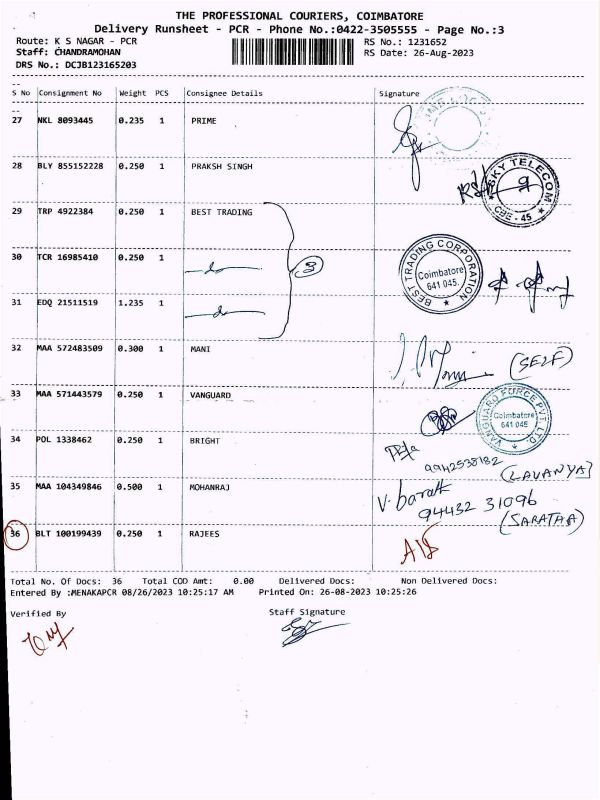 THE PROFESSIONAL COURIERS, COIMBATORE
Delivery Runsheet - PCR - Phone No.:0422-3505555 - Page No.:3
Route: K S NAGAR - PCR RS No.: 1231652
Staff: CHANDRAMOHAN RS Date: 26-Aug-2023
DRS No.: DCJB123165203
S No Consignment No Weight PCS Consignee Details Signature
27 NKL 8093445 0.235 1 PRIME
28 BLY 855152228 0.250 1 PRAKSH SINGH
SKY TELECOM
CBE - 45
29 TRP 4922384 0.250 1 BEST TRADING
30 TCR 16985410 0.250 1 —do— 3
BEST TRADING CORPORATION
Coimbatore
641 045.
31 EDQ 21511519 1.235 1 —do—
32 MAA 572483509 0.300 1 MANI (SELF)
33 MAA 571443579 0.250 1 VANGUARD
VANGUARD FORCE PVT. LTD.
Coimbatore
641 045
34 POL 1338462 0.250 1 BRIGHT
9942538182 (LAVANYA)
35 MAA 104349846 0.500 1 MOHANRAJ V. barath
94432 31096
(SARATHA)
36 BLT 100199439 0.250 1 RAJEES
Total No. Of Docs: 36 Total COD Amt: 0.00 Delivered Docs: Non Delivered Docs:
Entered By :MENAKAPCR 08/26/2023 10:25:17 AM Printed On: 26-08-2023 10:25:26
Verified By Staff Signature